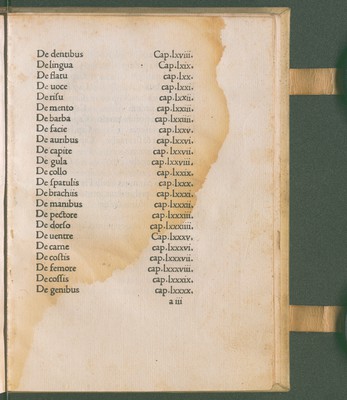 De dentibus Cap.lxviii.
De lingua Cap.lxix.
De flatu cap.lxx.
De uoce cap.lxxi.
De risu cap.lxxii.
De mento cap.lxxiii.
De barba cap.lxxiiii.
De facie cap.lxxv.
De auribus cap.lxxvi.
De capite cap.lxxvii.
De gula cap.lxxviii.
De collo cap.lxxix.
De spatulis cap.lxxx.
De brachiis cap.lxxxi.
De manibus cap.lxxxii.
De pectore cap.lxxxiii.
De dorso cap.lxxxiiii.
De uentre Cap.lxxxv.
De carne cap.lxxxvi.
De costis cap.lxxxvii.
De femore cap.lxxxviii.
De cossis cap.lxxxix.
De genibus cap.lxxxx.
a iii